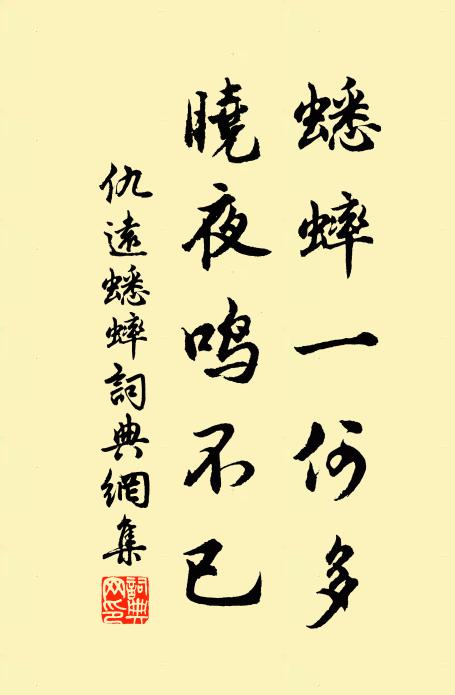 蟋蟀一何多
曉夜鸣不已
仇遠蟋蟀詞典網集
詞典
网印